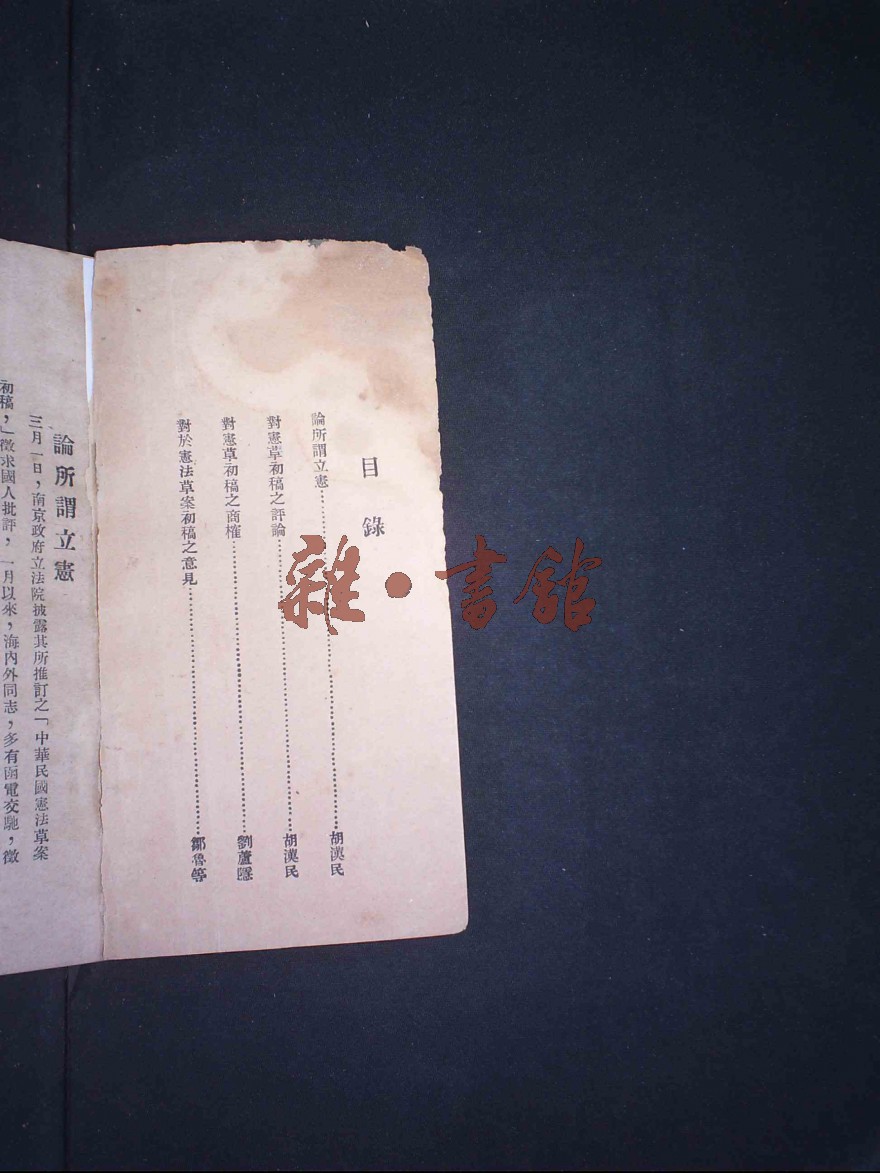 目錄
論所謂立憲……胡漢民
對憲草初稿之評論……胡漢民
對憲草初稿之商榷……劉蘆隱
對於憲法草案初稿之意見……鄒魯等
論所謂立憲
三月一日，南京政府立法院披露其所推訂之「中華民國憲法草案
初稿，」徵求國人批評，一月以來，海內外同志，多有函電交馳，徵
雜·書館